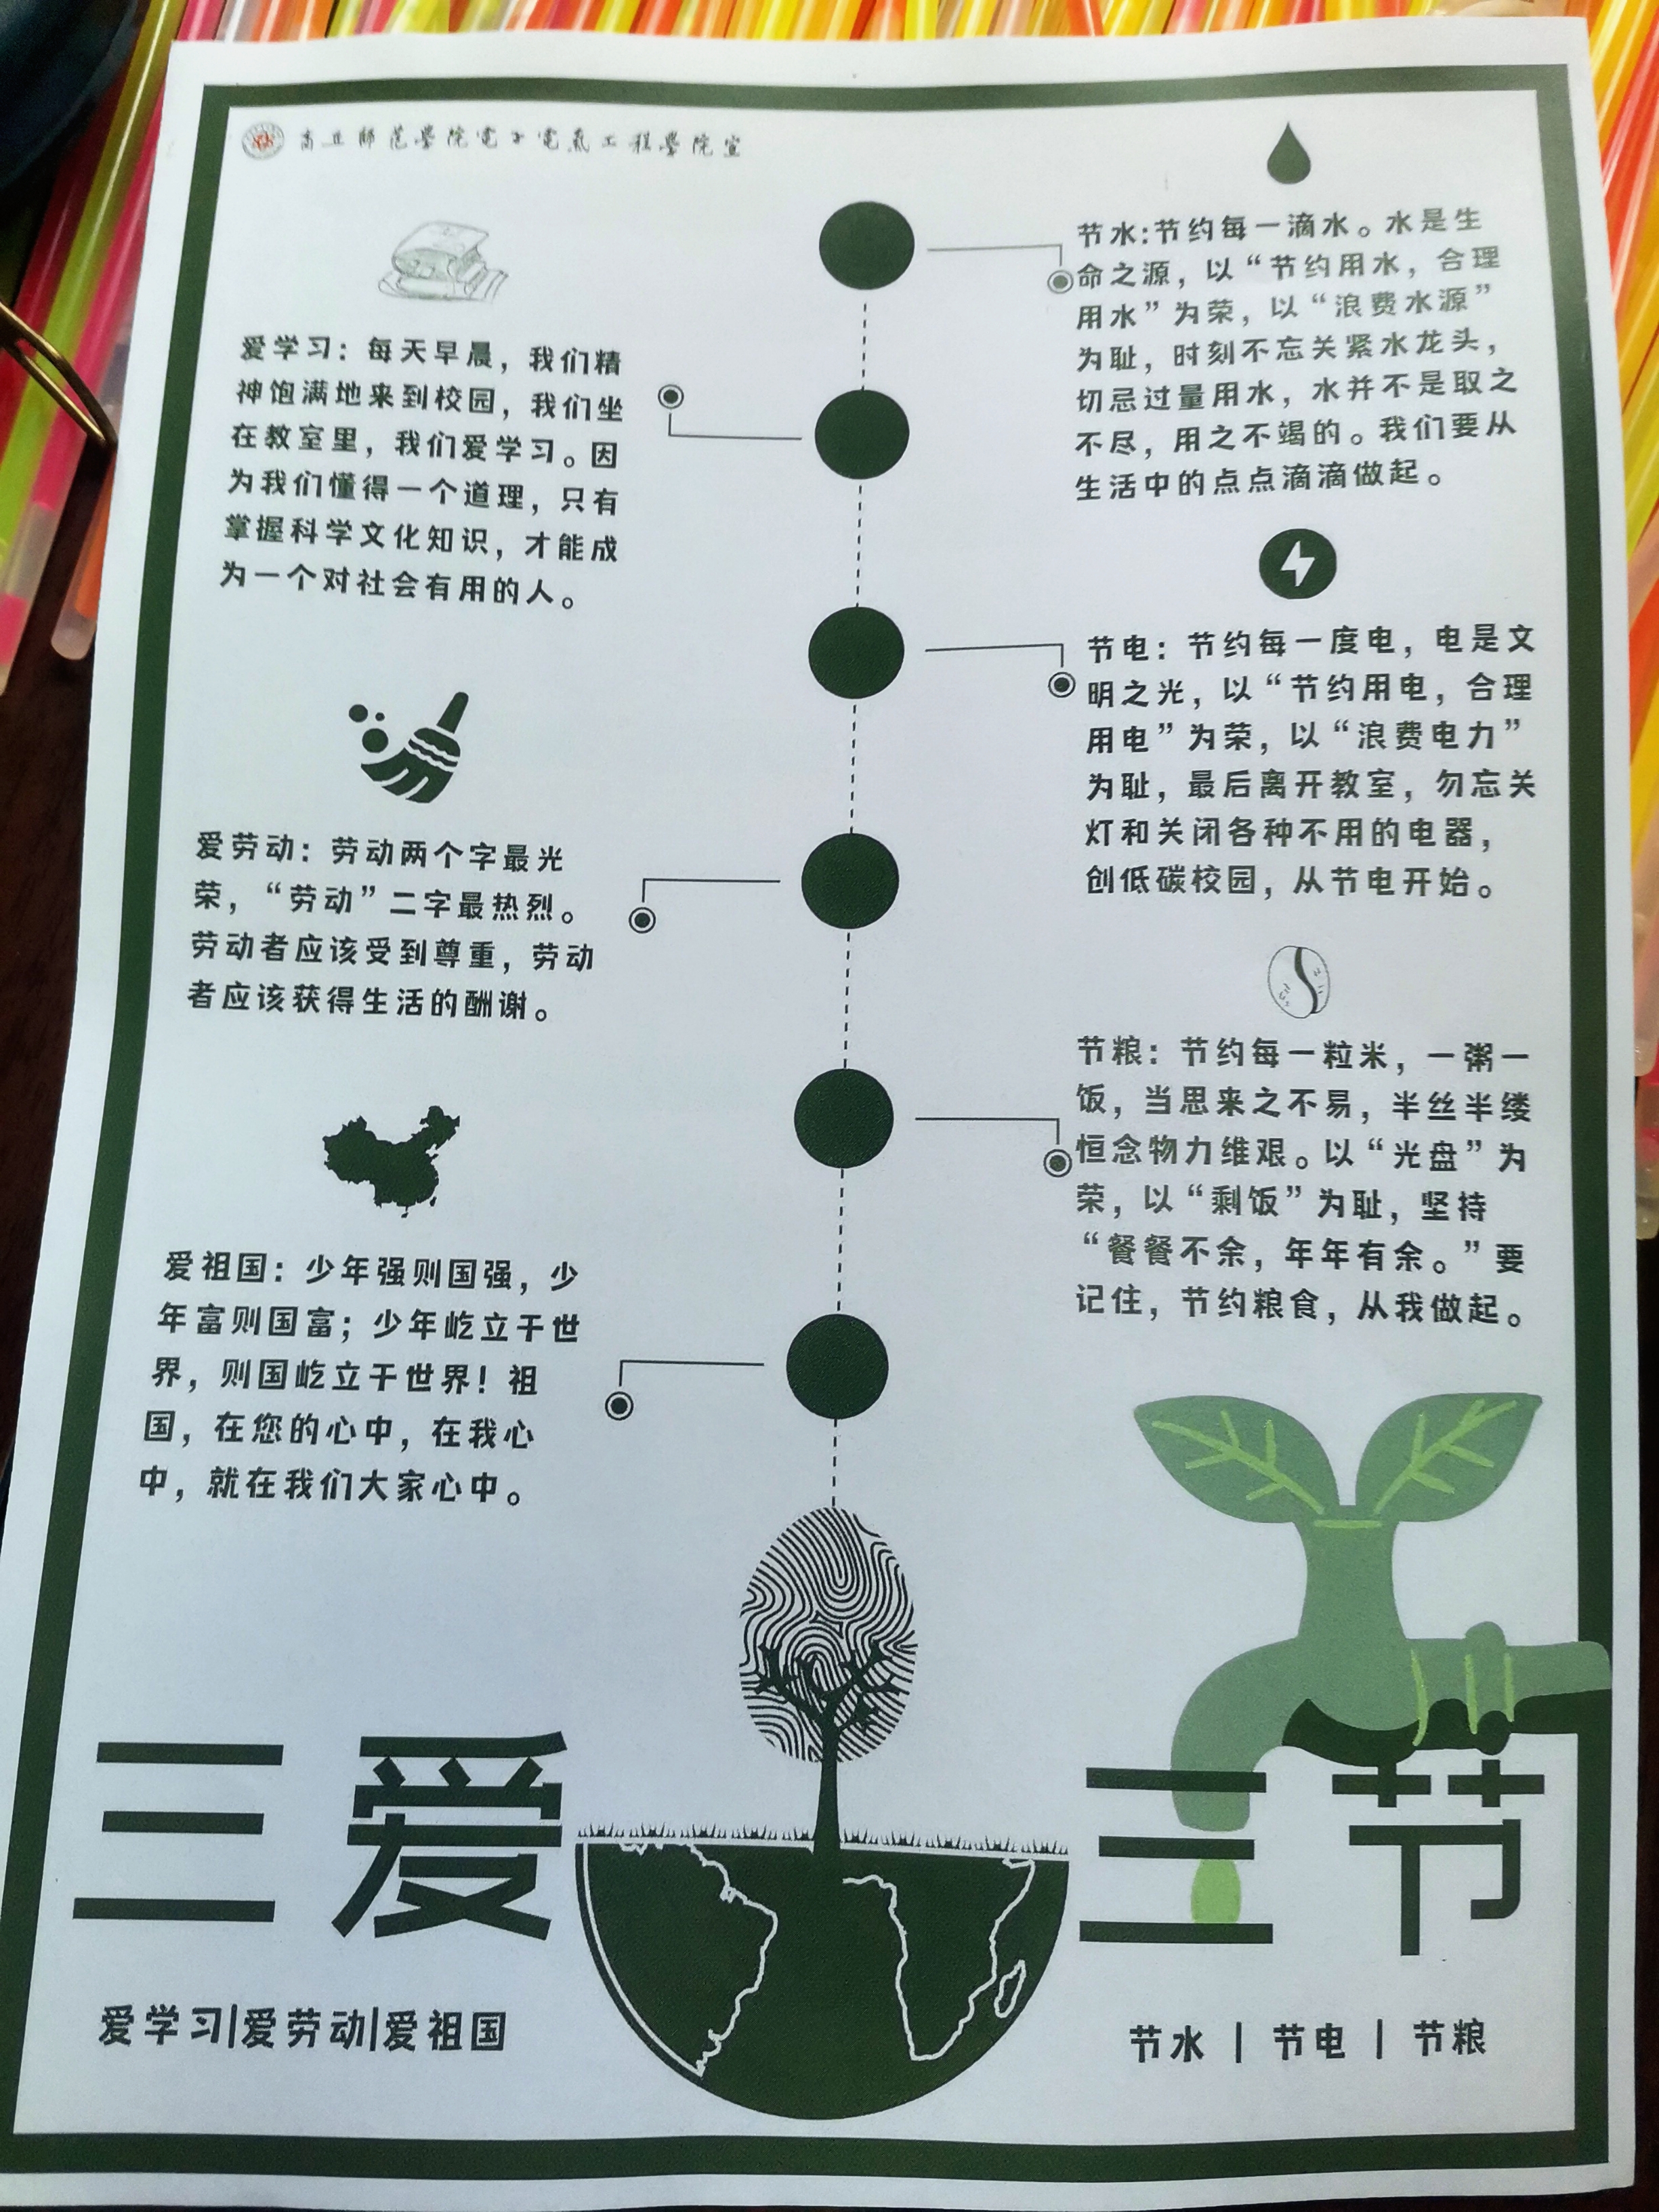 商丘師范學院電子電氣工程學院宣
爱学习：每天早晨，我们精
神饱满地来到校园，我们坐
在教室里，我们爱学习。因
为我们懂得一个道理，只有
掌握科学文化知识，才能成
为一个对社会有用的人。
爱劳动：劳动两个字最光
荣，“劳动”二字最热烈。
劳动者应该受到尊重，劳动
者应该获得生活的酬谢。
爱祖国：少年强则国强，少
年富则国富；少年屹立于世
界，则国屹立于世界！祖
国，在您的心中，在我心
中，就在我们大家心中。
节水:节约每一滴水。水是生
命之源，以“节约用水，合理
用水”为荣，以“浪费水源”
为耻，时刻不忘关紧水龙头，
切忌过量用水，水并不是取之
不尽，用之不竭的。我们要从
生活中的点点滴滴做起。
节电：节约每一度电，电是文
明之光，以“节约用电，合理
用电”为荣，以“浪费电力”
为耻，最后离开教室，勿忘关
灯和关闭各种不用的电器，
创低碳校园，从节电开始。
节粮：节约每一粒米，一粥一
饭，当思来之不易，半丝半缕
恒念物力维艰。以“光盘”为
荣，以“剩饭”为耻，坚持
“餐餐不余，年年有余。”要
记住，节约粮食，从我做起。
三爱
爱学习|爱劳动|爱祖国
三节
节水 | 节电 | 节粮